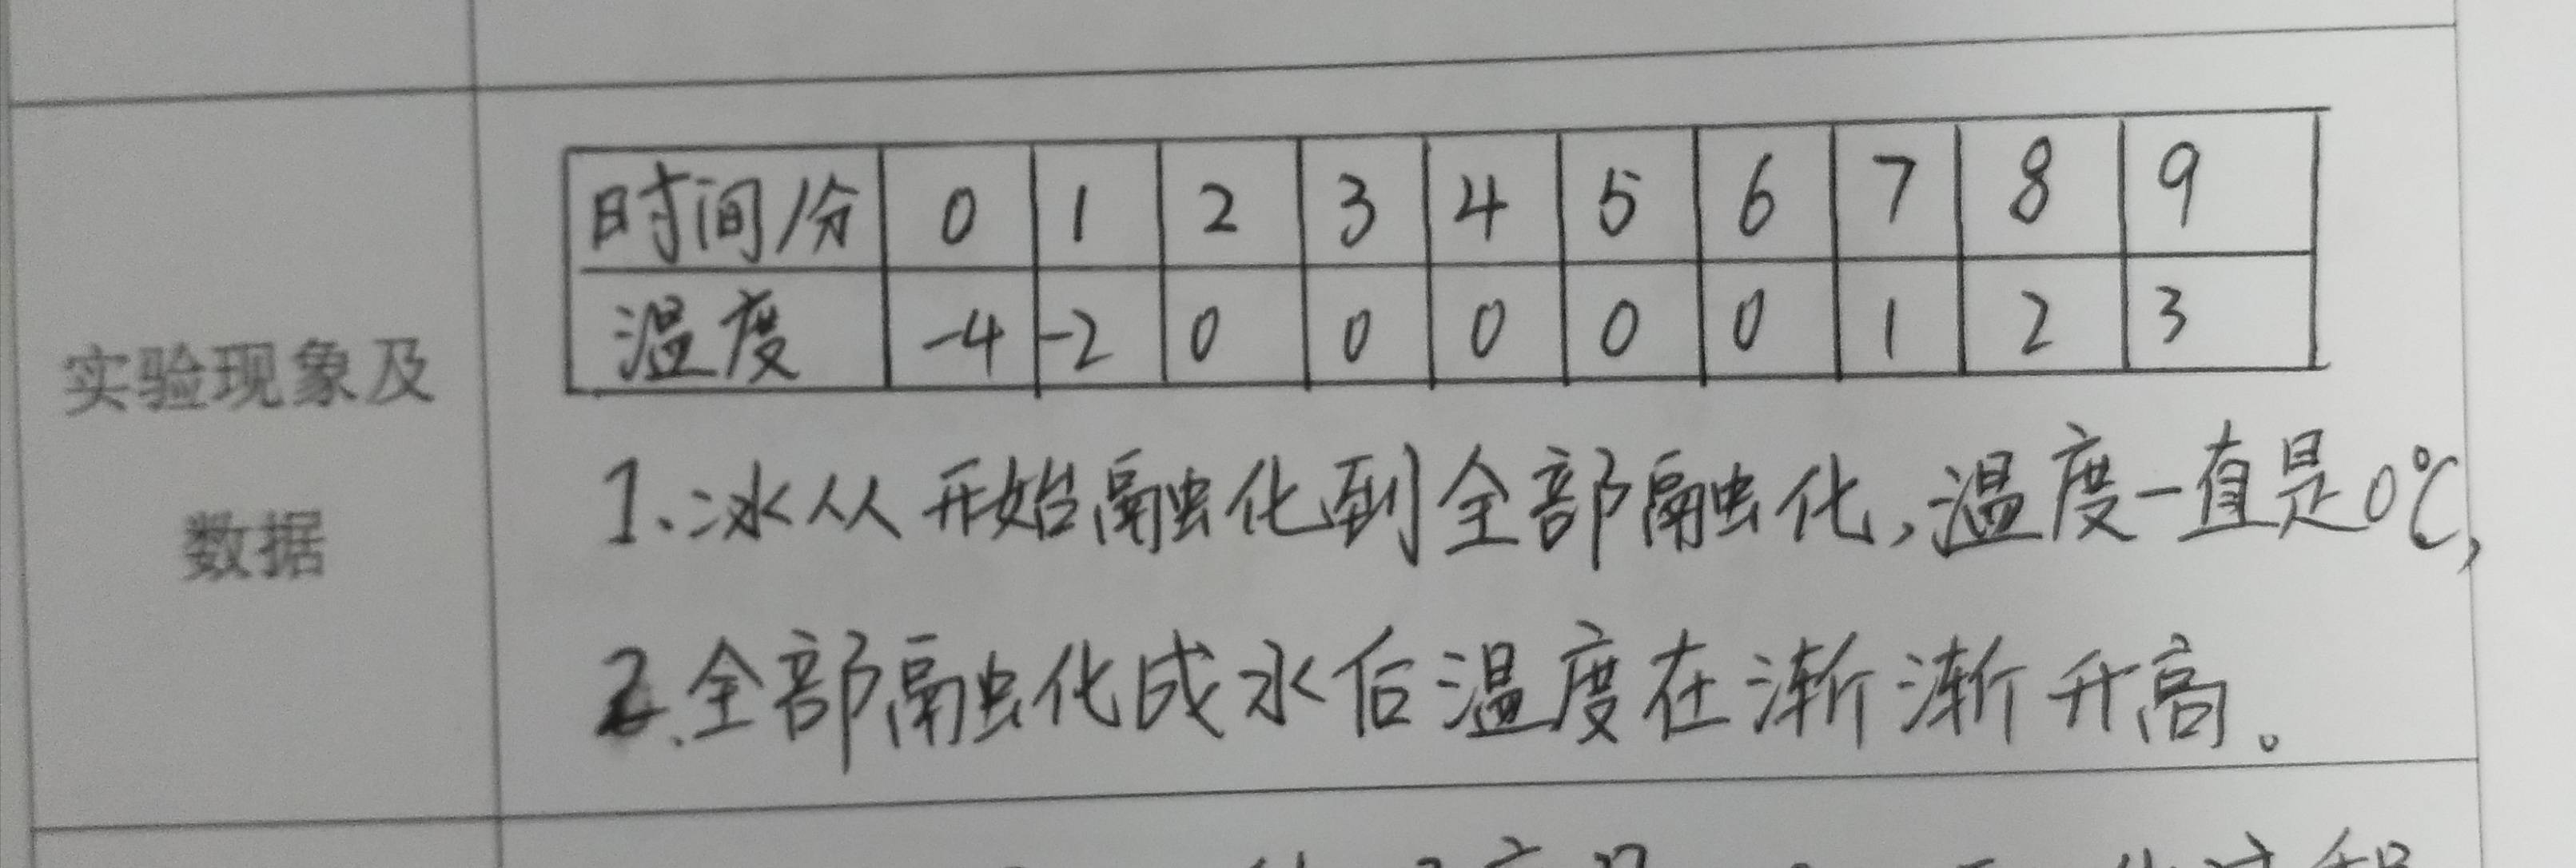 时间/分 0 1 2 3 4 5 6 7 8 9
温度 -4 -2 0 0 0 0 0 1 2 3
实验现象及
数据
1.冰从开始融化到全部融化,温度一直是0℃,
2.全部融化成水后温度在渐渐升高。